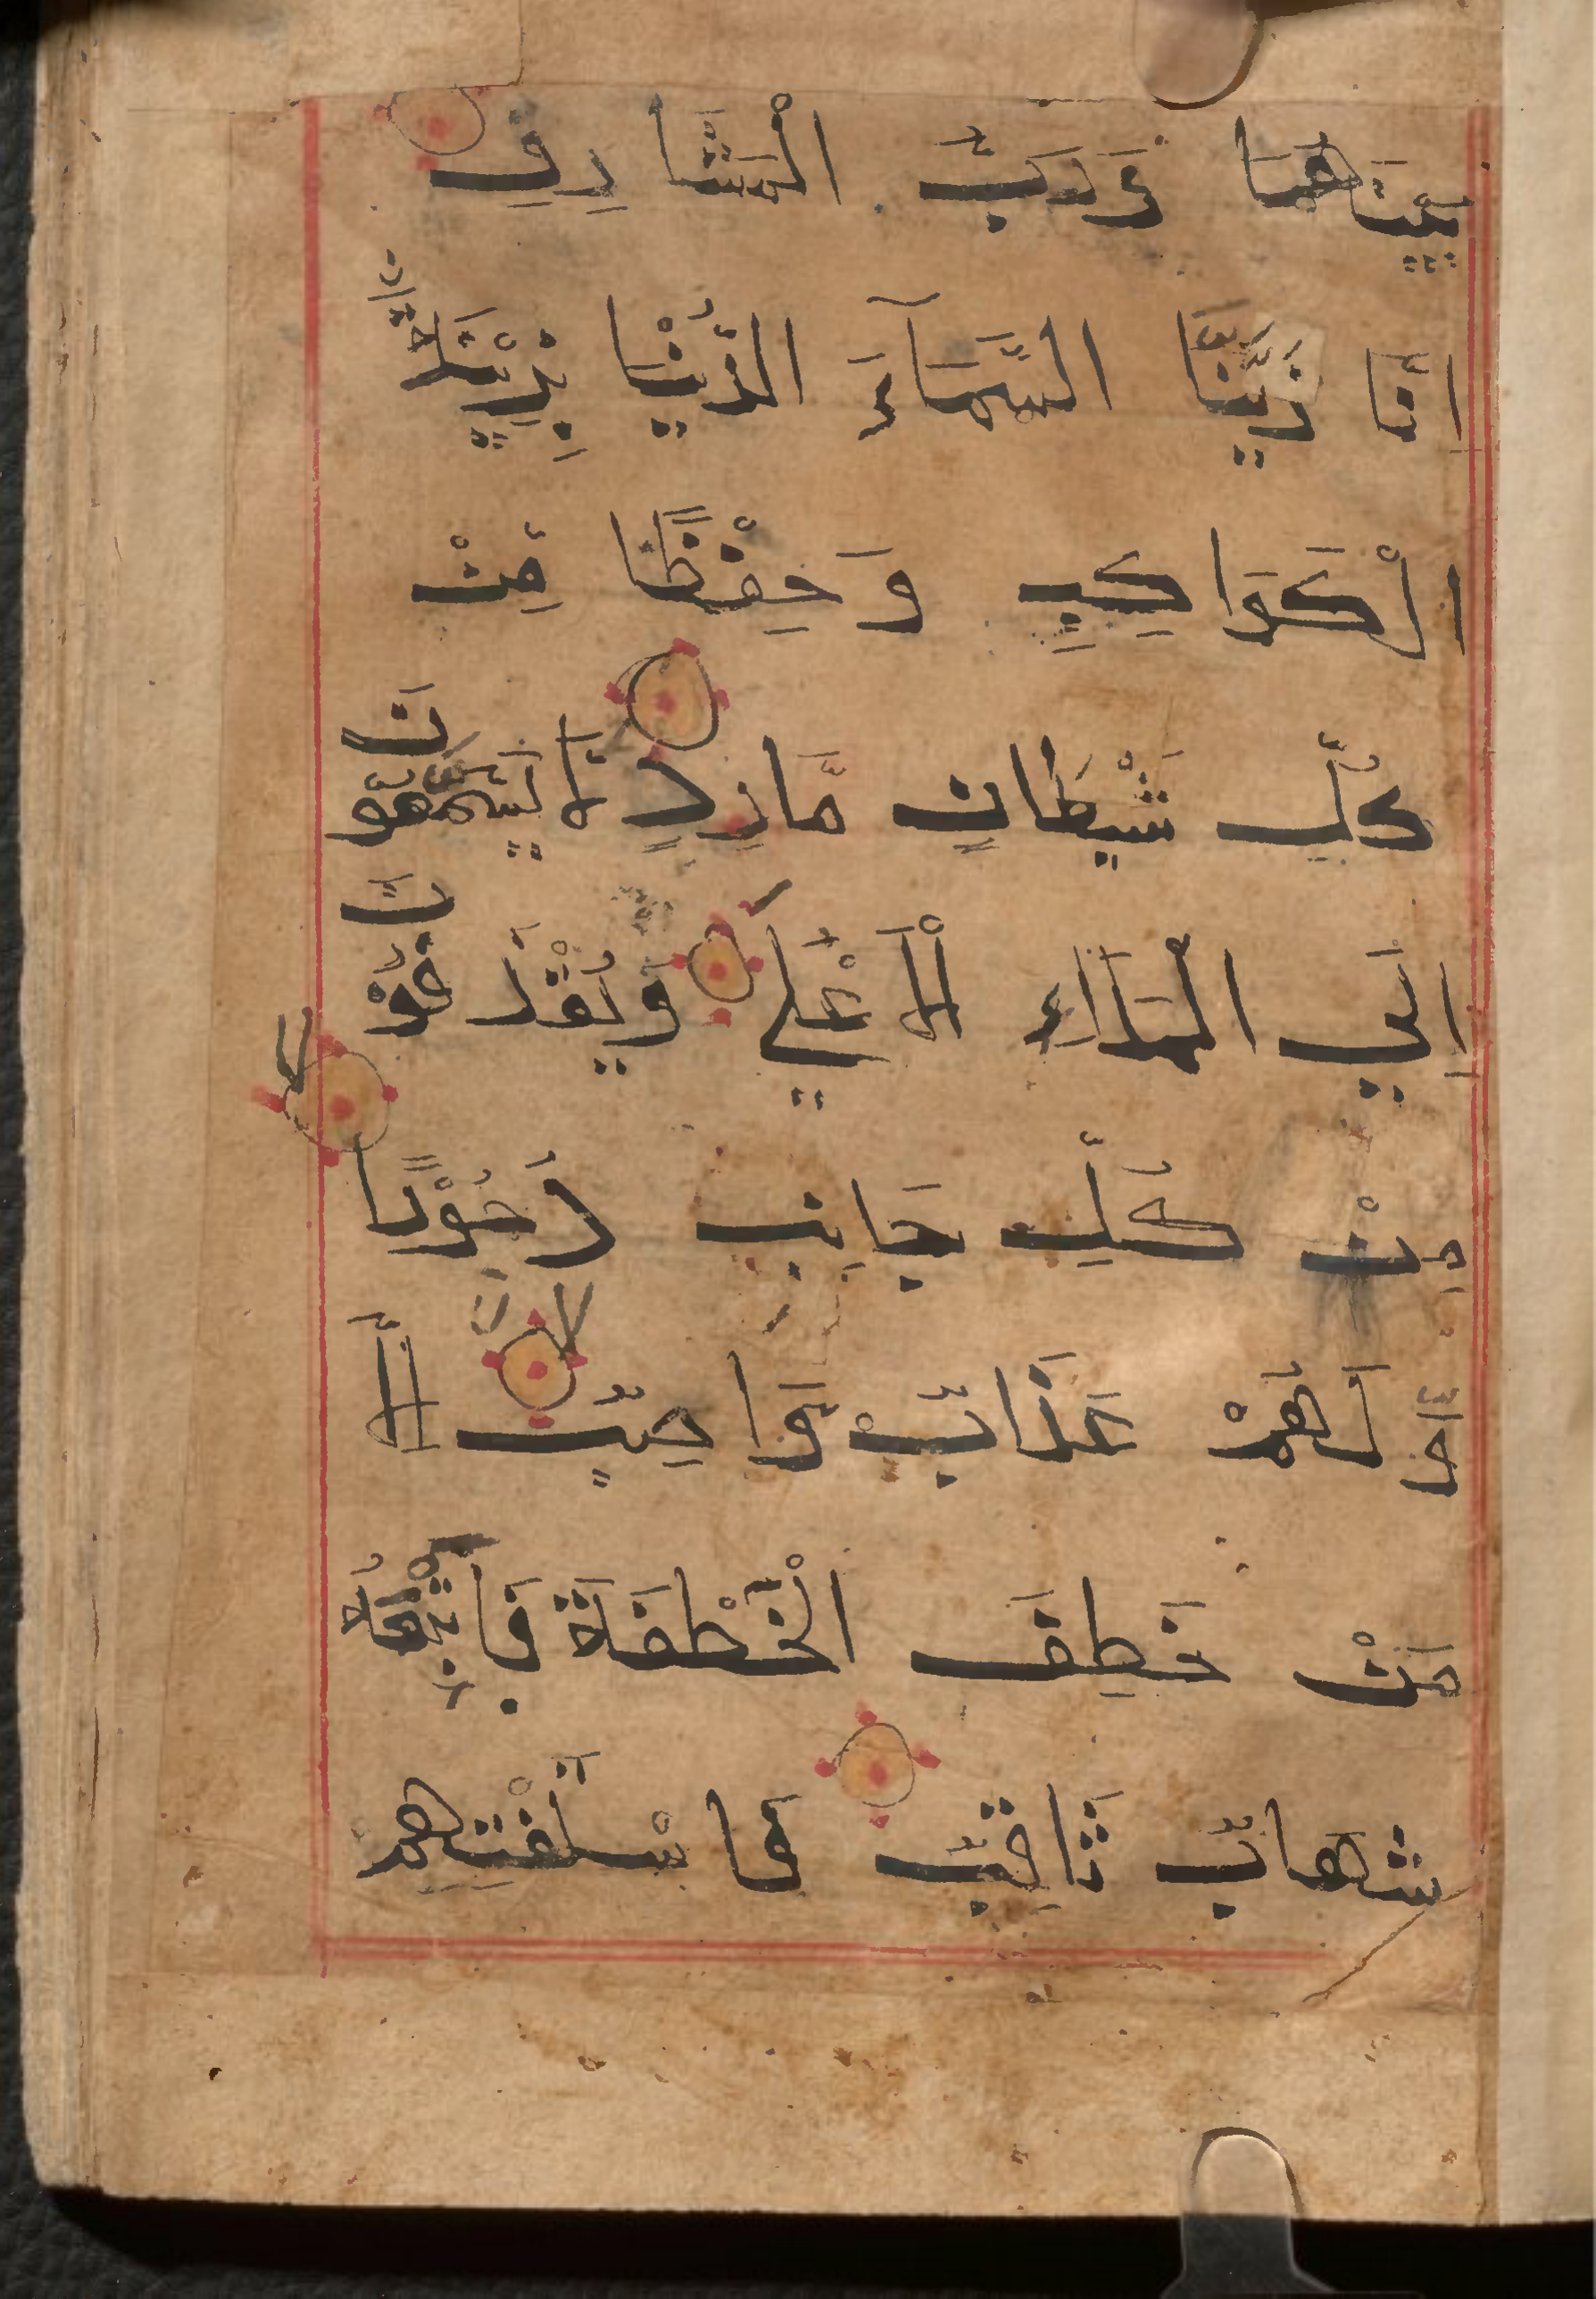 بَيْنَهُمَا وَرَبُّ الْمَشَارِقِ
اِنَّا زَيَّنَّا السَّمَآءَ الدُّنْيَا بِزِيْنَةِ
الْكَوَاكِبِ وَحِفْظًا مِّنْ
كُلِّ شَيْطَانٍ مَّارِدٍ لَا يَسَّمَّعُوْنَ
اِلَي الْمَلَاءِ الْاَعْلٰي وَيُقْذَفُوْنَ
مِنْ كُلِّ جَانِبٍ دُحُوْرًا
وَلَهُمْ عَذَابٌ وَّاصِبٌ اِلَّا
مَنْ خَطِفَ الْخَطْفَةَ فَاَتْبَعَهُ
شِهَابٌ ثَاقِبٌ فَاسْتَفْتِهِمْ